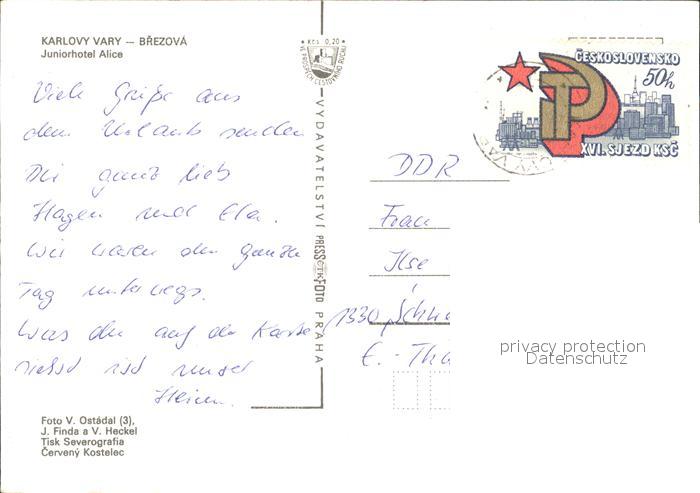 KARLOVY VARY — BŘEZOVÁ
Juniorhotel Alice
Kčs 0,20
VE PROSPĚCH CESTOVNÍHO RUCHU
ČESKOSLOVENSKO
50h
XVI. SJEZD KSČ
Viele Grüße aus
dem Urlaub senden
Dir ganz lieb
Hagen und Ela.
Wir waren den ganzen
Tag unterwegs.
Was du auf der Karte
siehst ist unser
Heim.
VYDAVATELSTVÍ PRESSFOTO PRAHA
ČTK
DDR
Frau
Ilse
1330
E.-Thä
privacy protection
Datenschutz
Foto V. Ostádal (3),
J. Finda a V. Heckel
Tisk Severografia
Červený Kostelec